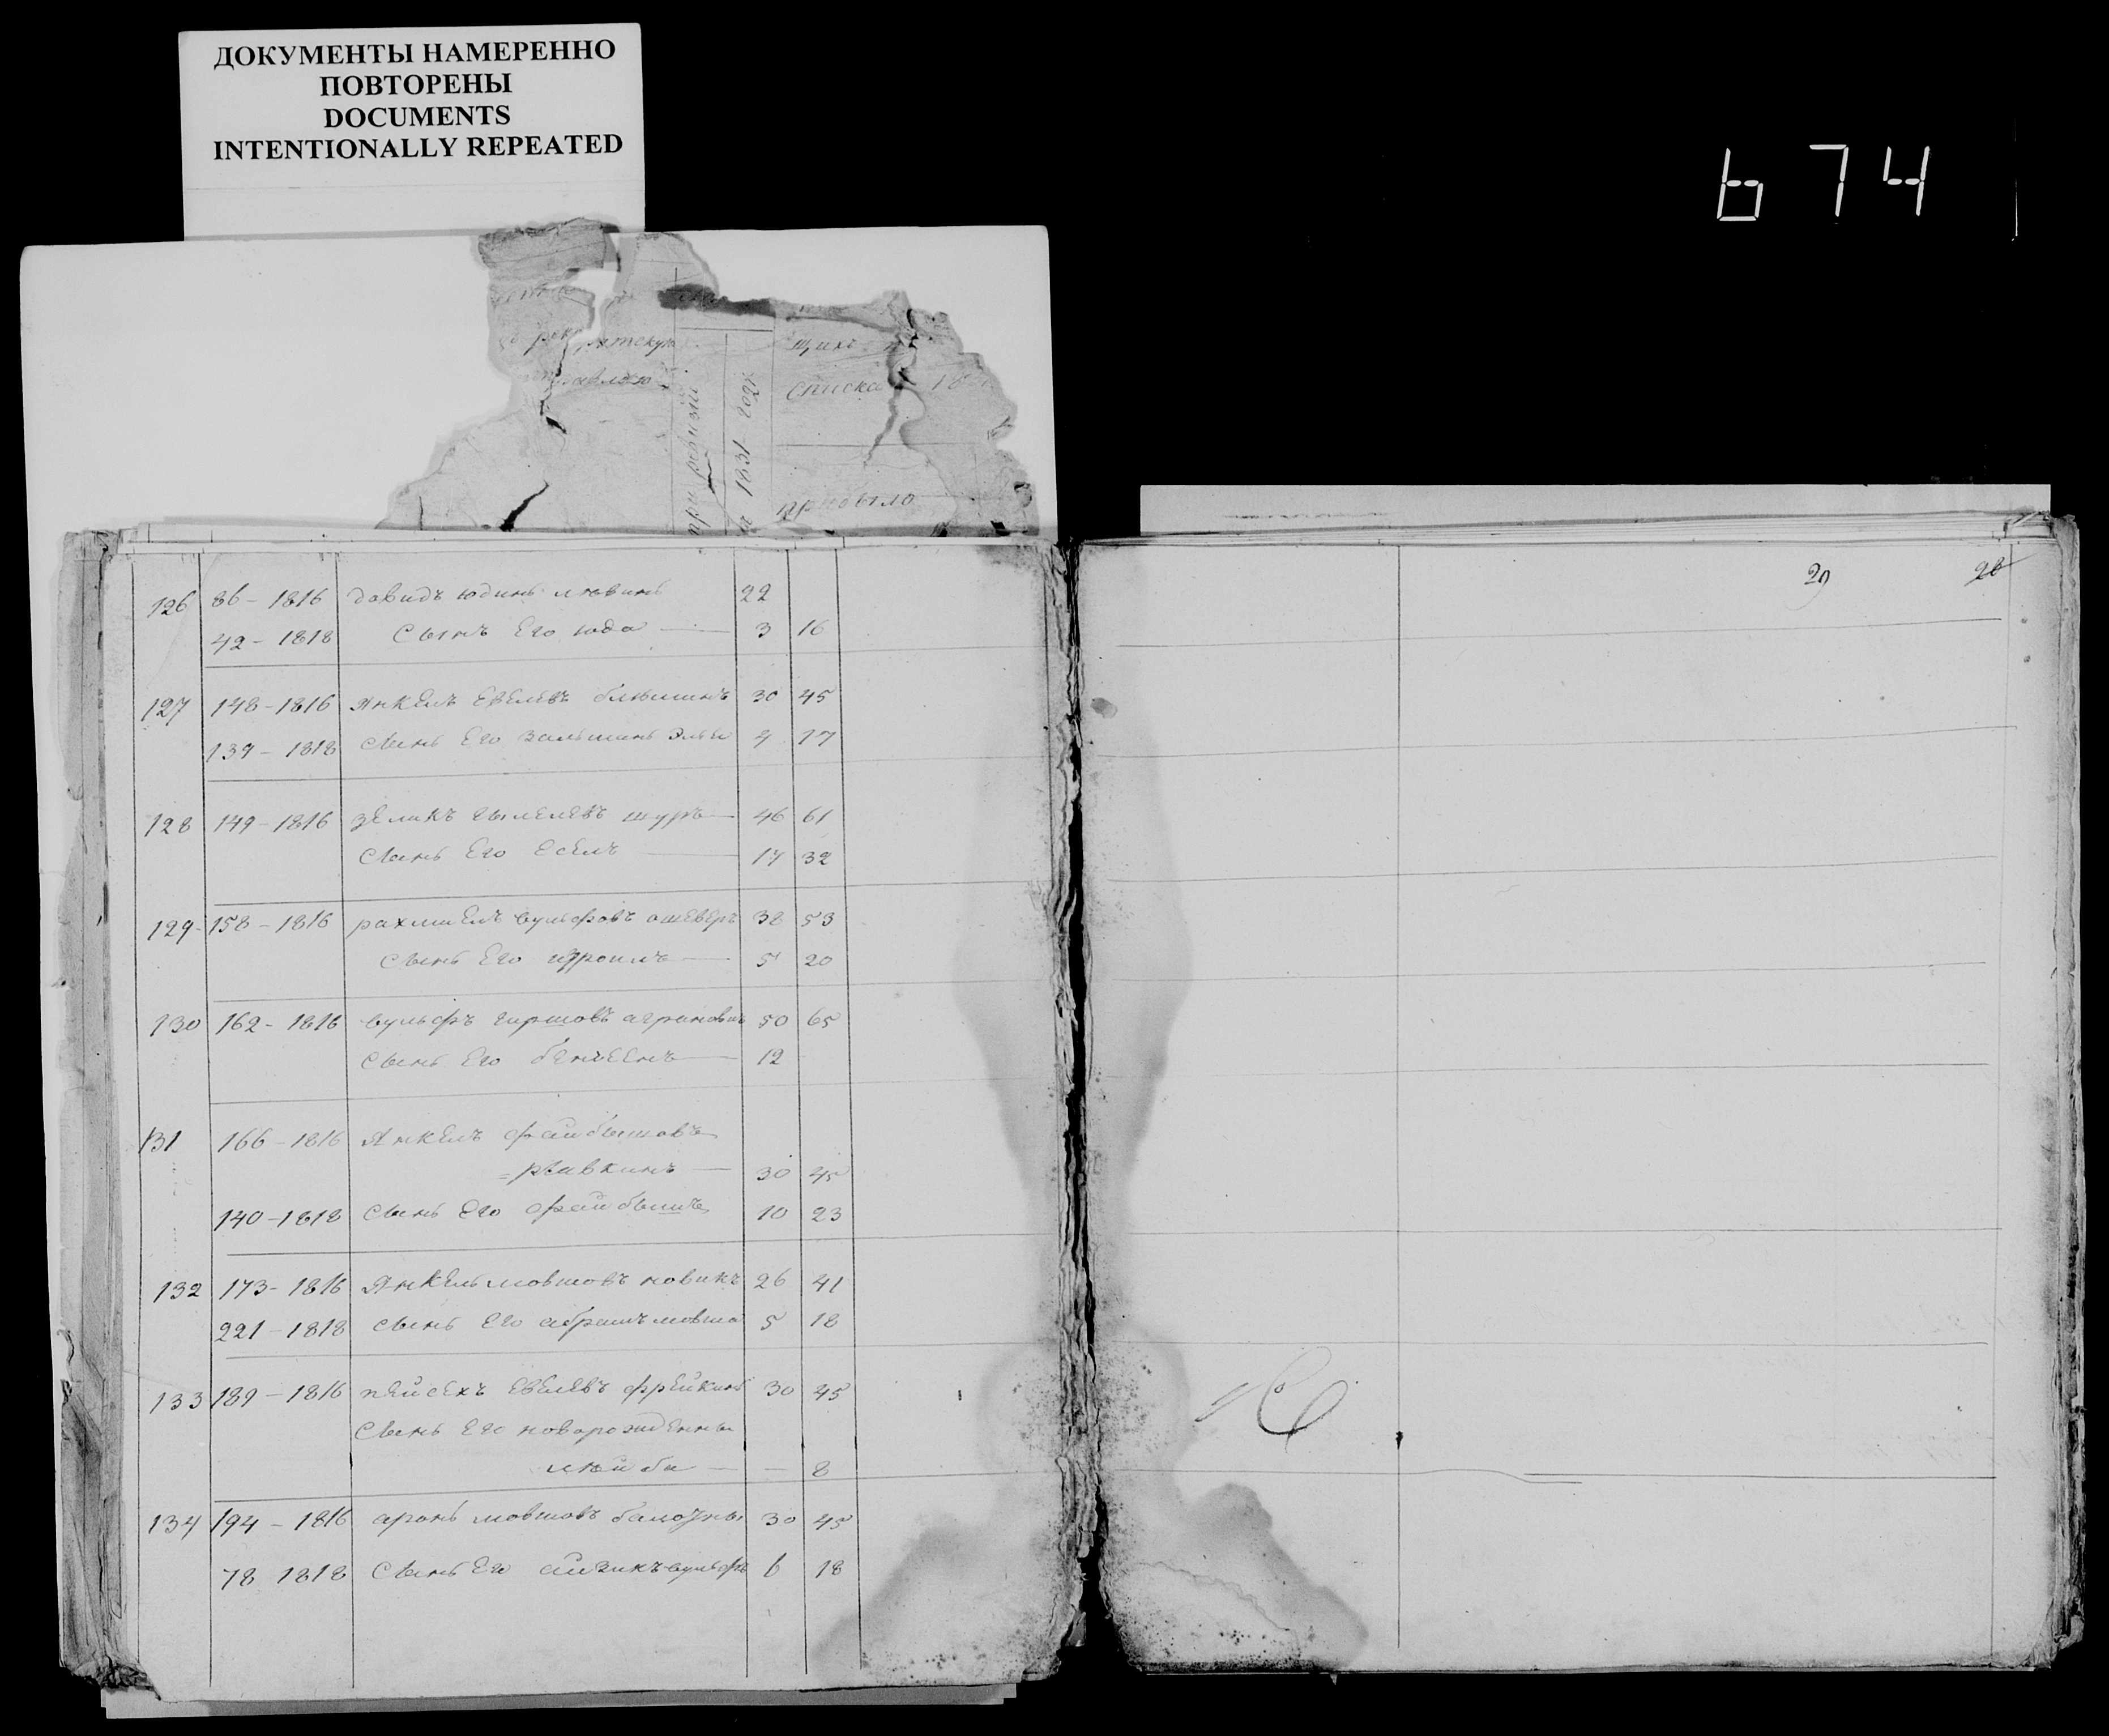 ДОКУМЕНТЫ НАМЕРЕННО
ПОВТОРЕНЫ
DOCUMENTS
INTENTIONALLY REPEATED
674
щихъ
списка
при ревизіи
1831 года
прибыло
29 28
126 86 - 1816 давидъ юдинъ левинъ 22
42 - 1818 Сынъ Его юда 3 16
127 148 - 1816 Янкель Евелевъ 30 45
139 - 1818 Сынъ Его Зальманъ 4 17
128 149 - 1816 зеликъ шуръ 46 61
Сынъ Его Есель 17 32
129 158 - 1816 рахмиель вульфовъ ошеверъ 38 53
Сынъ Его изроиль 5 20
130 162 - 1816 вульфъ гиршовъ аграновичъ 50 65
Сынъ Его 12
131 166 - 1816 Янкель файбышовъ
= рывкинъ 30 45
140 - 1818 Сынъ Его файбышъ 10 23
132 173 - 1816 Янкель мовшовъ новикъ 26 41
221 - 1818 Сынъ Его абрамъ мовша 5 18
133 189 - 1816 пейсехъ Евелевъ фрейкинъ 30 45
Сынъ Его новорожденны
лейба 8
134 194 - 1816 аронъ мовшовъ 30 45
78 1818 Сынъ Его айзикъ вульфъ 6 18